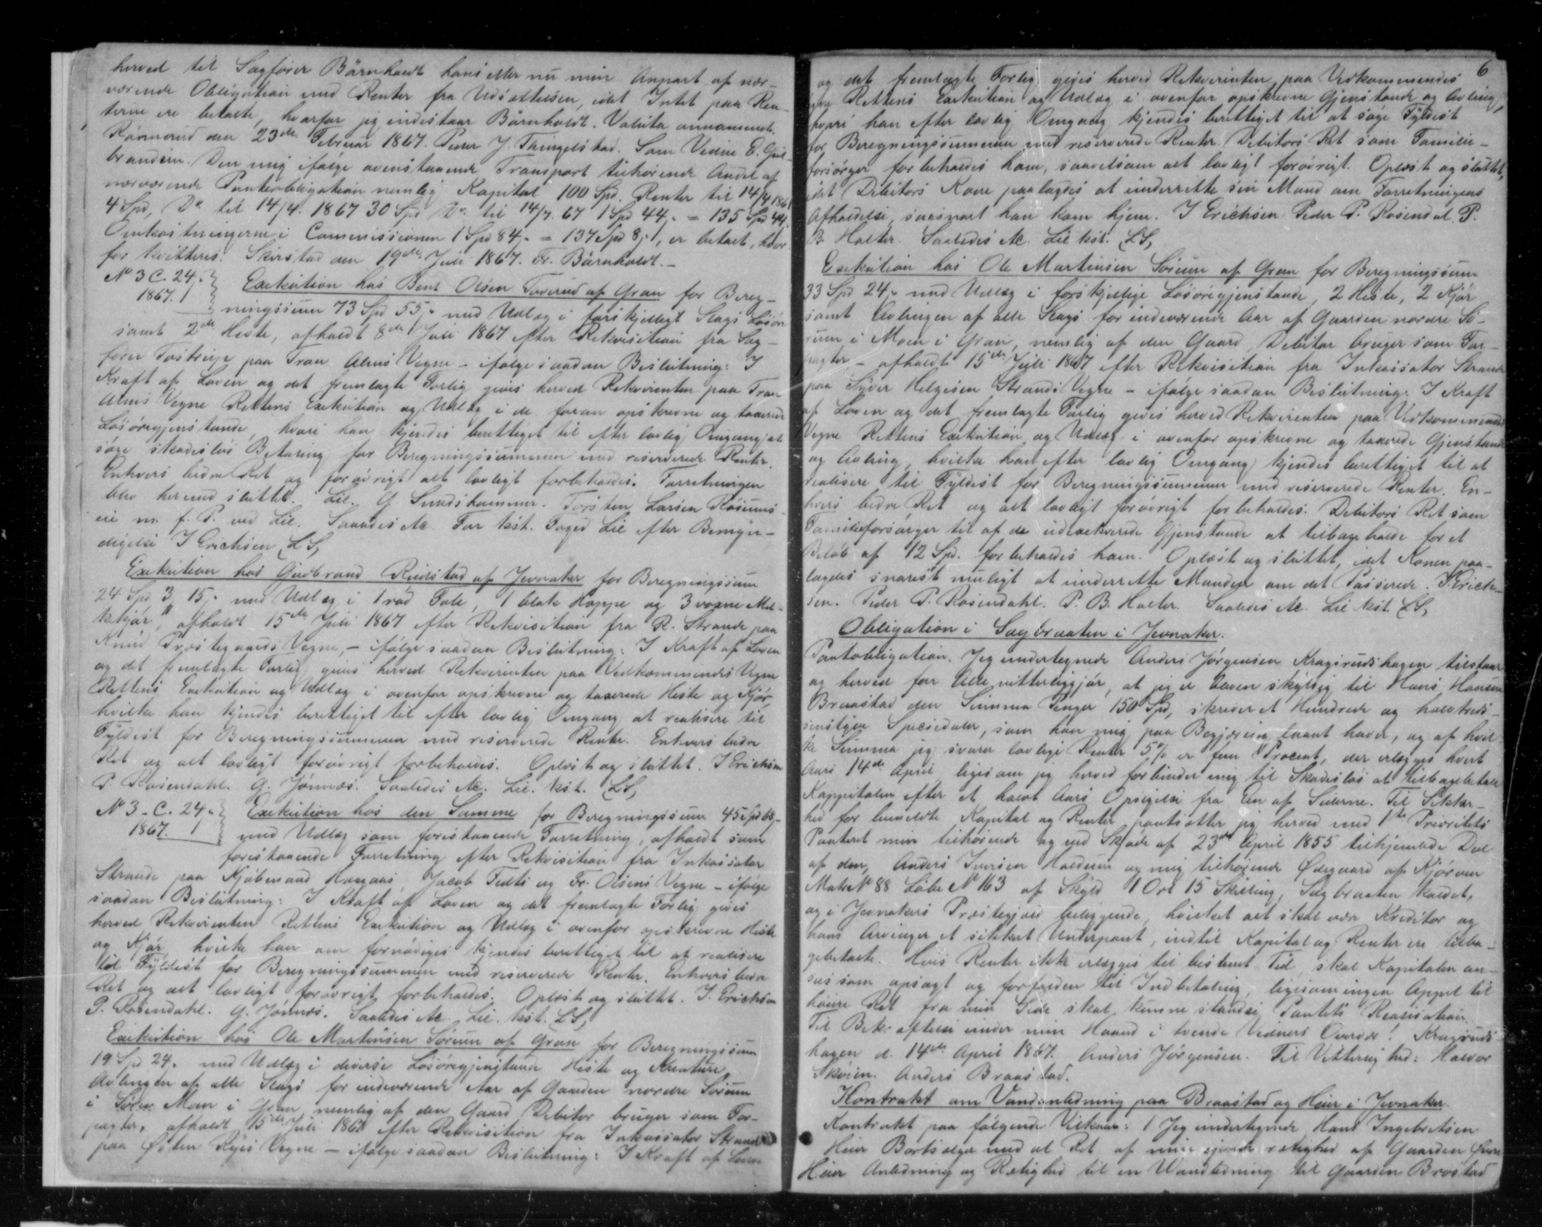 herved til Sagfører Bärnholdt hans eller nu min Anpart af nær-
værende Obligation med Renter fra Udstedelsen, idet Intet paa Ren-
terne er betalt, hvorfor jeg indestaar Bärnholdt. Valuta annammet.
den 23de Februar 1867. Peder J. Som Vidne E. Gul-
brandsen. Den mig ifølge ovenstaaende Transport tilhørende Andel af
nærværende Pantobligation nemlig Kapital 100 Spd, Renter til 14/4 1861
4 Spd, Do til 14/4. 1867 30 Spd Do til 14/7. 67 1 Spd 44 - = 135 Spd 44.
Omkostningerne i Commissionen 1 Spd 84 - = 137 Spd 8 -, er betalt, hvor-
for kvitteres. den 19de Juli 1867. Fr. Bärnholdt. -
No 3 C. 24.
1867.
Exekution hos Bent Olsen Toverud af Gran for Bereg-
ningssum 73 Spd 55 - med Udlæg i forskjelligt Slags Løsøre
samt 2de Heste, afholdt 8de Juli 1867 efter Rekvisition fra Sag-
fører paa Iver Alms Vegne - ifølge saadan Beslutning: I
Kraft af Loven og det fremlagte Forlig gives herved Rekvirenten paa Iver
Alms Vegne Rettens Exekution og Udlæg i de foran opskrevne og taxerede
Løsøregjenstande, hvori han kjendes berettiget til efter lovlig Omgang at
søge skadesløs Betaling for Beregningssummen med reserverede Renter.
Enhvers bedre Ret og forøvrigt alt lovligt forbeholdes. Forretningen
blev hermed sluttet. Lie. G. Sindshammer. Torsten Larsen
eie m. f. P. ved Lie. Saaledes At. For kst. Foged Lie efter Bemyn-
digelse I Erichsen LS,
Exekution hos Gudbrand Rudstad af Jevnaker for Beregningssum
24 Spd 3 15 - med Udlæg i 1 rød Fole, 1 blak Hoppe og 3 Mel-
kekjør, afholdt 15de Juli 1867 efter Rekvisition fra R. Strande paa
Knud Vegne, - ifølge saadan Beslutning: I Kraft af Loven
og det fremlagte Forlig gives herved Rekvirenten paa Vedkommendes Vegne
Rettens Exekution og Udlæg i ovenfor opskrevne og taxerede Heste og Kjør
hvilke han kjendes berettiget til efter lovlig Omgang at realisere til
Fyldest for Beregningssummen med reserverede Renter. Enhvers bedre
Ret og alt lovligt forøvrigt forbeholdes. Opløst og sluttet. I Erichsen
P Rosendahl. G. Jónnæs. Saaledes At. Lie. kst. LS,
No 3 - C. 24 -
1867.
Exekution hos den Samme for Beregningssum 45 Spd 68 -
med Udlæg som foreskaaende Forretning, afholdt som
foreskaaende Forretning efter Rekvisition fra Inkassator
Strande paa Kjøbmand Jacob Tedts og Fr. Olsens Vegne - ifølge
saadan Beslutning: I Kraft af Loven og det fremlagte Forlig gives
herved Rekvirenten Rettens Exekution og Udlæg i ovenfor opskrevne Heste
og Kjør hvilke han om fornødiges kjendes berettiget til at realisere
til Fyldest for Beregningssummen med reserverede Renter. Enhvers bedre
Ret og alt lovligt forøvrigt forbeholdes. Opløst og sluttet. I. Erichsen
P. Rosendahl. G. Jónnæs. Saaledes At. Lie. kst. LS,
Exekution hos Ole Martinsen Sørum af Gran for Beregningssum
19 Spd 24. med Udlæg i diverse Løsøregjenstande Heste og Kreature,
Avlingen af alle Slags for indeværende Aar af Gaarden nordre Sørum
i Moen i Gran, nemlig af den Gaard Debitor bruger som For-
pagter, afholdt 15de Juli 1867 efter Rekvisition fra Inkassator Strande
paa Vegne - ifølge saadan Beslutning: I Kraft af Loven
6
og det fremlagte Forlig gives herved Rekvirenten paa Vedkommendes
Vegne Rettens Exekution og Udlæg i ovenfor opskrevne Gjenstande og Avling,
hvori han efter lovlig Omgang kjendes berettiget til at søge Fyldest
for Beregningssummen med reserverede Renter. Debitors Ret som Familie-
forsørger forbeholdes ham, saavelsom alt lovligt forøvrigt. Opløst og sluttet,
idet Debitors Kone paalagdes at underrette sin Mand om Forretningens
Afholdelse, saasnart han kom hjem. I Erichsen. Peder P. Rosendal. P.
B. Halter. Saaledes At. Lie kst. LS,
Exekution hos Ole Martinsen Sørum af Gran for Beregningssum
33 Spd 24 - med Udlæg i forskjellige Løsøregjenstande, 2 Heste, 2 Kjør
samt Avlingen af alle Slags for indeværende Aar af Gaarden nordre Sø-
rum i Moen i Gran, nemlig af den Gaard Debitor bruger som For-
pagter - afholdt 15de Juli 1867 efter Rekvisition fra Inkassator Strande
paa Syver Helgesen Strands Vegne - ifølge saadan Beslutning: I Kraft
af Loven og det fremlagte Forlig gives herved Rekvirenten paa Vedkommendes
Vegne Rettens Exekution og Udlæg i ovenfor opskrevne og taxerede Gjenstande
og Avling, hvilke han efter lovlig Omgang kjendes berettiget til at
realisere til Fyldest for Beregningssummen med reserverede Renter. En-
hvers bedre Ret og alt lovligt forøvrigt forbeholdes. Debitors Ret som
Familieforsørger til af de udlagte Gjenstande at tilbageholde for et
Beløb af 12 Spd. forbeholdes ham. Opløst og sluttet, idet Konen paa-
lagdes snarest muligt at underrette Manden om det Passerede. I Erich-
sen. Peder P. Rosendahl. P. B. Halter. Saaledes At. Lie kst. LS,
Obligation i Sagbraaten i Jevnaker.
Pantobligation. Jeg undertegnede Anders Jørgensen Kragsrudshagen tilstaar
og herved for Alle vitterliggjør, at jeg er bleven skyldig til Hans Hansen
Braastad den Summa Penge 150 Spd, skriver et Hundrede og halvtreds-
sindstyve Speciedaler, som han mig paa Begjæring laant haver, og af hvil-
ke Summa jeg svarer lovlige Renter 5% er fem Procent, der erlægges hvert
Aars 14de April, ligesom jeg herved forbinder mig til Skadesløs at tilbagebetale
Kappitalen efter et halvt Aars Opsigelse fra Een af Siderne. Til Sikker-
hed for bemeldte Kapital og Renter pantsætter jeg herved med 1ste Prioritets
Panteret min tilhørende og ved Skjøde af 23de April 1855 tilhjemlede Deel
af den, Anders Iversen Haldum og mig tilhørende Ødegaard af Kjørven
Matr No 88 Løbe No 163 af Skyld 1 Ort 15 Skilling, Sagbraaten kaldet,
og i Jevnakers Præstegjæld beliggende, hvilket alt skal være Kreditor og
hans Arvinger et sikkert Underpant, indtil Kapital og Renter ere tilba-
gebetalt. Hvis Renter ikke erlægges til bestemt Tid, skal Kapitalen an-
sees som opsagt og forfalden til Indbetaling, ligesom ingen Appel til
høiere Ret fra min Side skal kunne standse Pantets Realisation.
Til Bekræftelse under min Haand i tvende Vidners Overvær! Kragsruds-
hagen d. 14de April 1867. Anders Jørgensen. Til Vitterlighed: Halvor
Skøien. Anders Braastad.
Kontrakt om Vandledning paa Braastad og Heier i Jevnaker.
Kontrakt paa følgende Vilkaar: 1 Jeg undertegnede Hans Ingebretsen
Heier Bortsælger med al Ret af min af Gaarden Øvre
Heier Anledning og Rettighed til en Vandledning til Gaarden Brostad